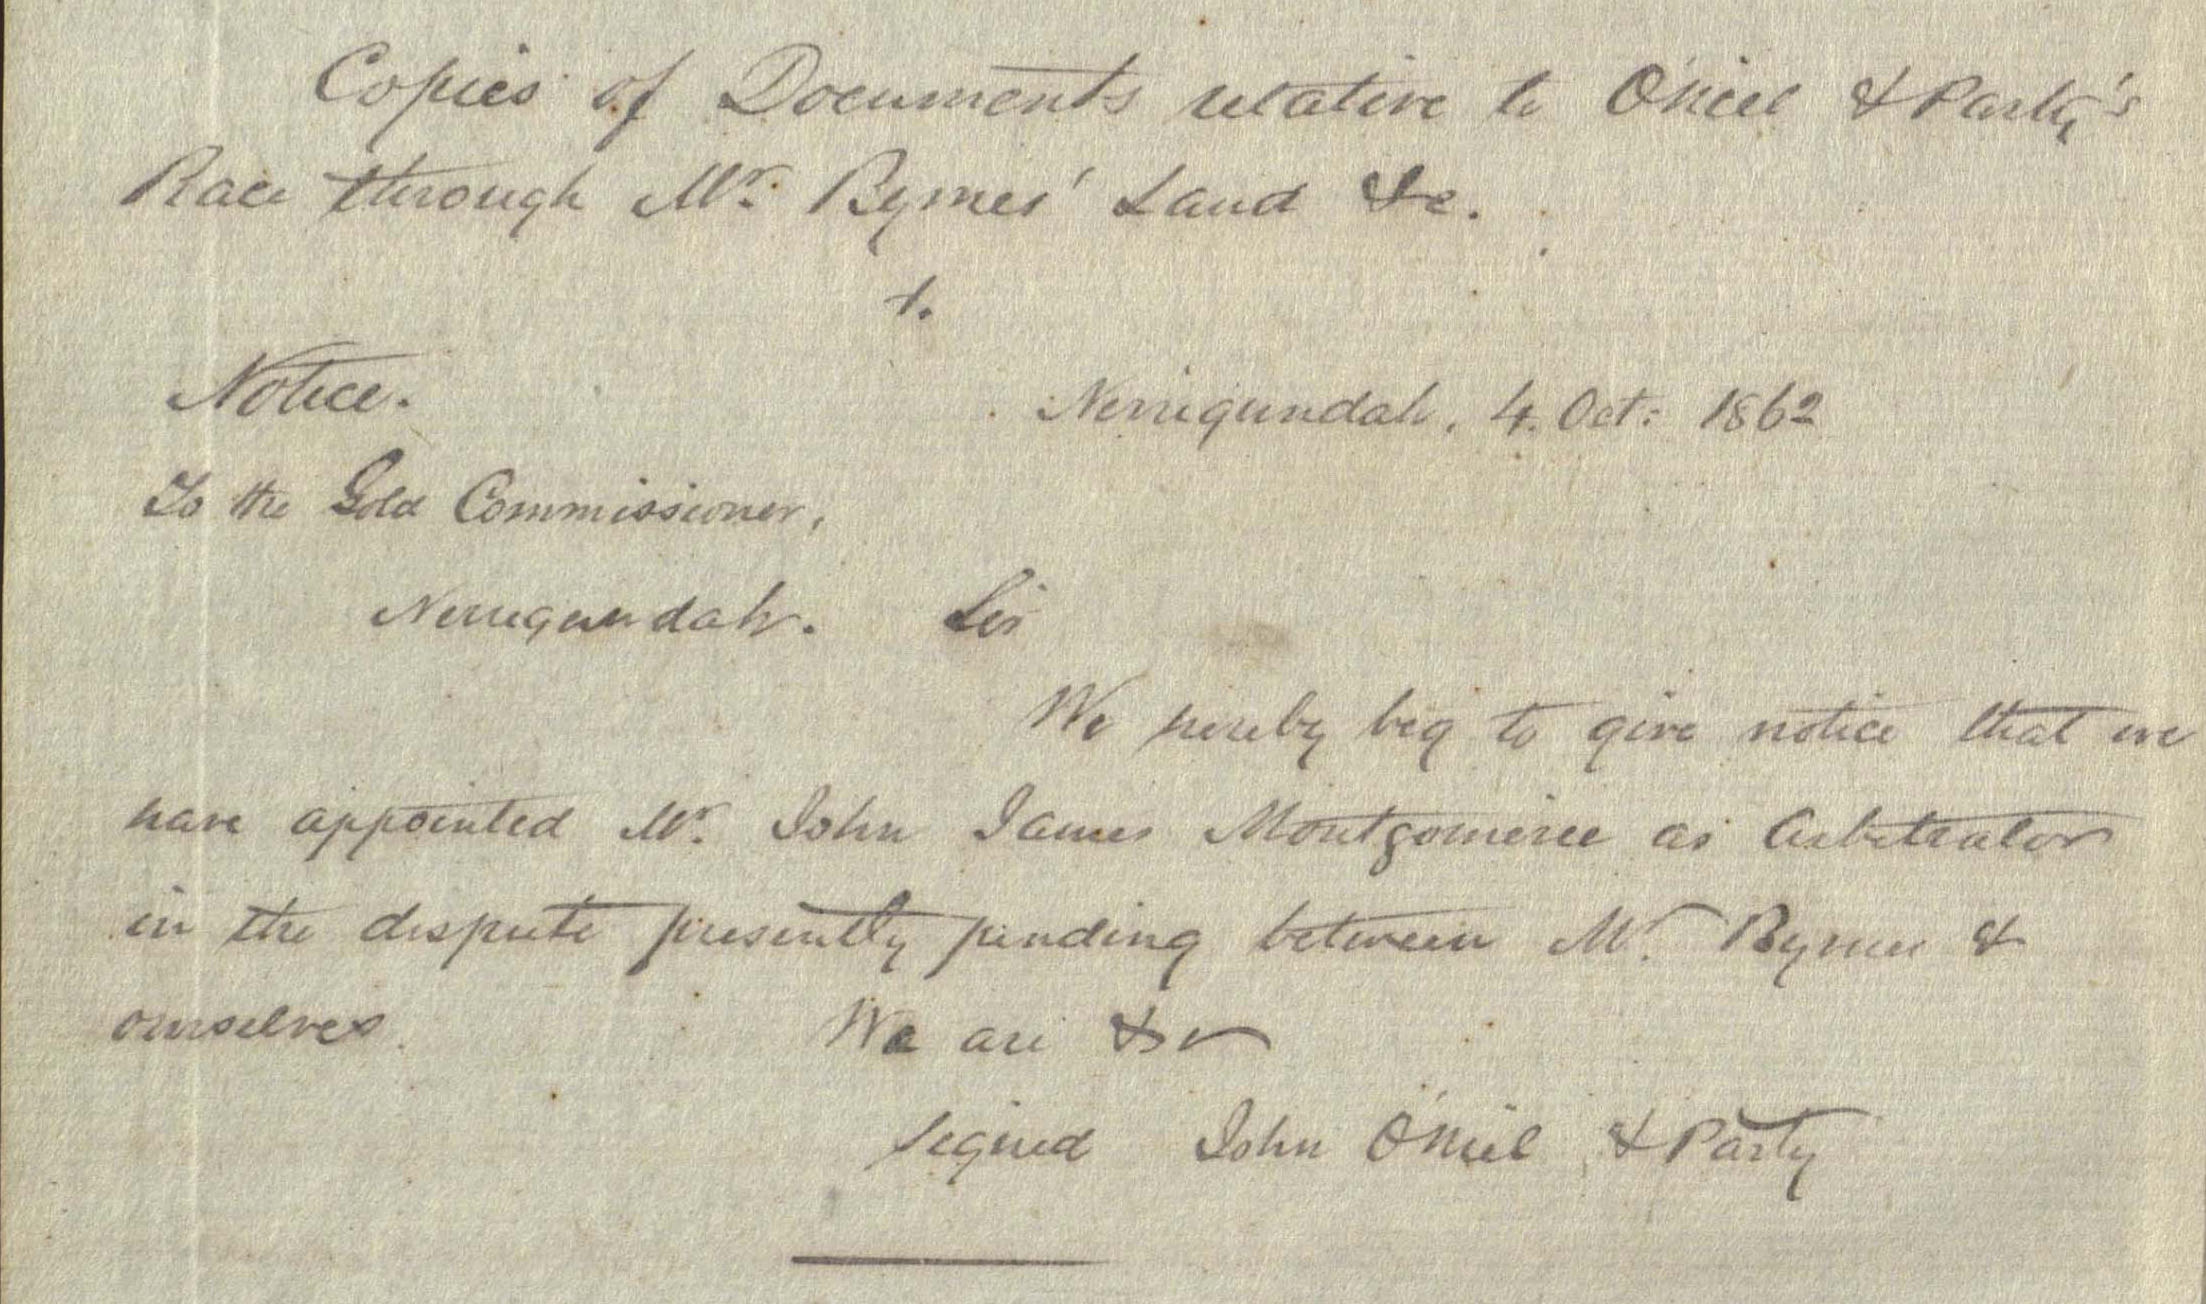 Copies of Documents relative to O'Niel & Party's
Race through Mr. Byrnes' Land &c.
1.
Notice. Nerrigundah, 4. Oct: 1862
To the Gold Commissioner,
Nerrigundah. Sir
We hereby beg to give notice that we
have appointed Mr. John James Montgomerie as Arbitrator
in the dispute presently pending between Mr. Byrnes &
ourselves. We are &c
Signed John O'Niel & Party